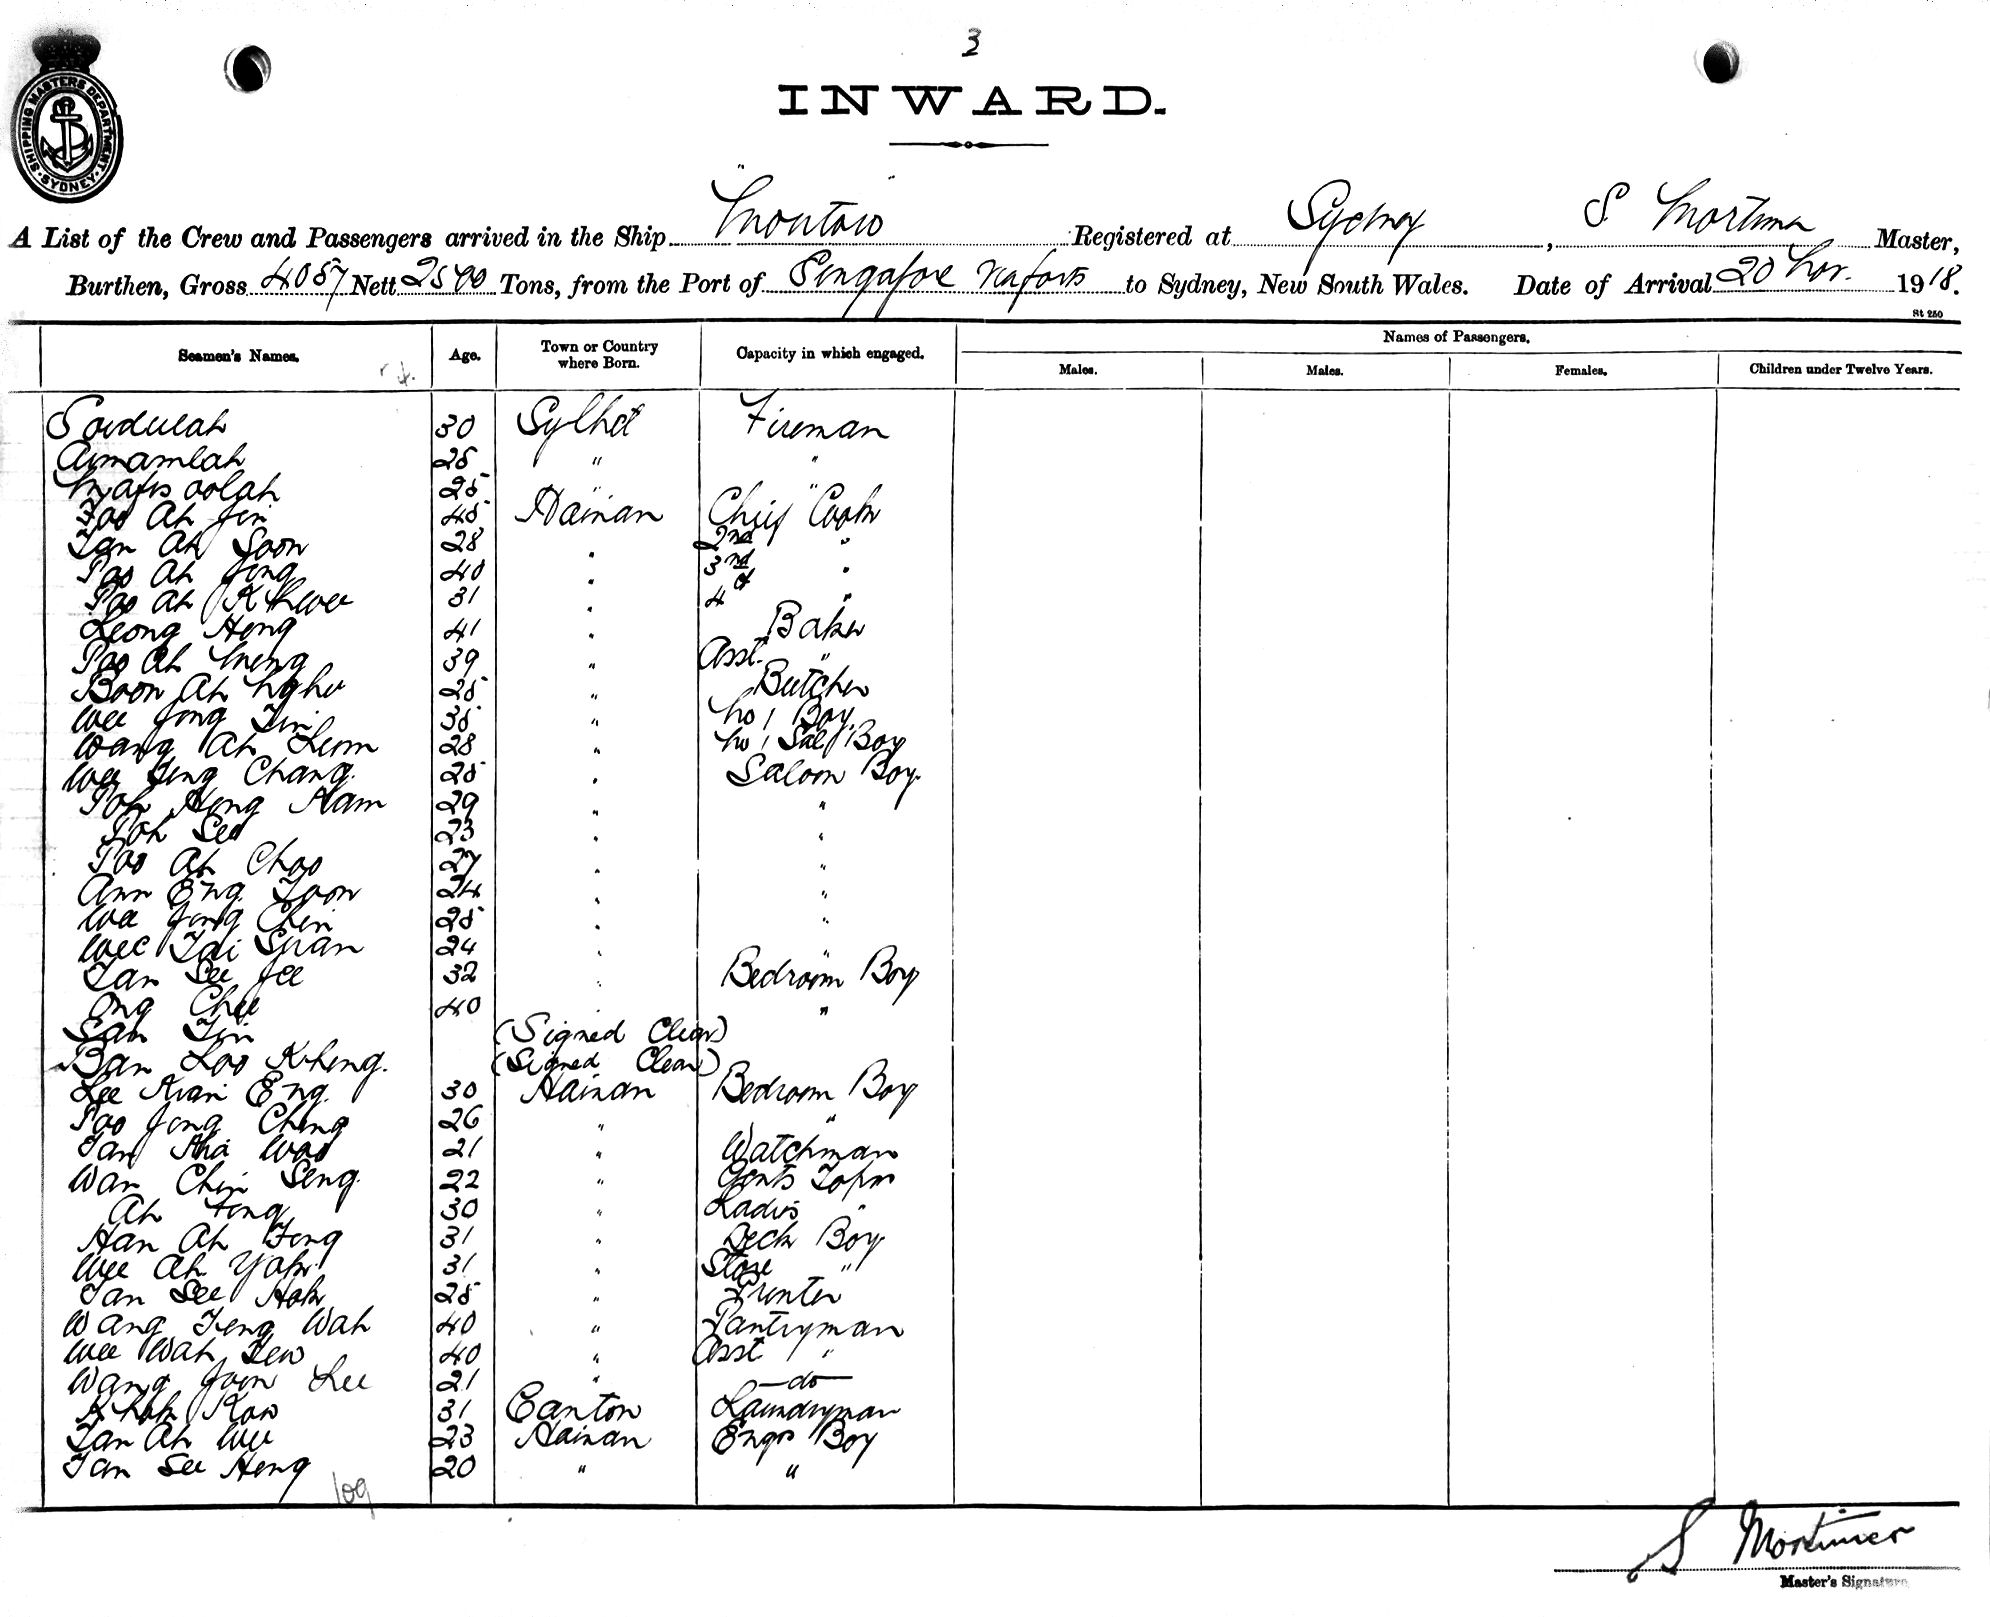 3
SHIPPING MASTERS DEPARTMENT
SYDNEY
INWARD.
A List of the Crew and Passengers arrived in the Ship "Montoro" Registered at Sydney, S Mortimer Master,
Burthen, Gross 4057 Nett 2500 Tons, from the Port of Singapore via ports to Sydney, New South Wales. Date of Arrival 20 Nov. 1918.
St 250
Seamen's Names. Age. Town or Country where Born. Capacity in which engaged. Names of Passengers.
Males. Males. Females. Children under Twelve Years.
Soidulah 30 Sylhet Fireman
Aimamlah 25 " "
Mafis oolah 25 " "
Foo Ah Jin 45 Hainan Chief Cook
Tan Ah Soon 28 " 2nd "
Poo Ah Jong 40 " 3rd "
Poo Ah Khwee 31 " 4th "
Leong Heng 41 " Baker
Poo Ah Meng 39 " Asst. "
Boon Ah 25 " Butcher
Wee Jong Tin 35 " No 1 Boy
Wang Ah Leom 28 " No 1 Sal Boy
Wee Jeng Chang. 25 " Saloon Boy.
Poh Heng Nam 29 " "
Poh Seo 23 " "
Poo Ah Choo 27 " "
Ann Eng Toon 24 " "
Wee Jong Chin 25 " "
Wee Tai Suan 24 " "
Tan See Jee 32 " Bedroom Boy
Ong Chee 40 " "
San Tin (Signed Clear)
Ban Loo Kheng. (Signed Clear)
Lee Kian Eng. 30 Hainan Bedroom Boy
Poo Jong Cheng 26 " "
Tan Kha Woo 21 " Watchman
Wan Chin Seng. 22 " Gents Topm
Ah Fong 30 " Ladies "
Han Ah Fong 31 " Deck Boy
Wee Ah Yak. 31 " Store "
Tan See Hok 25 " Printer
Wang Feng Wah 40 " Pantryman
Wee Wah Tew 40 " Asst "
Wang Joon Lee 21 " —do—
Khok Kow 31 Canton Laundryman
Tan Ah Wee 23 Hainan Engrs Boy
Tan See Heng 20 " "
109
S Mortimer
Master's Signature